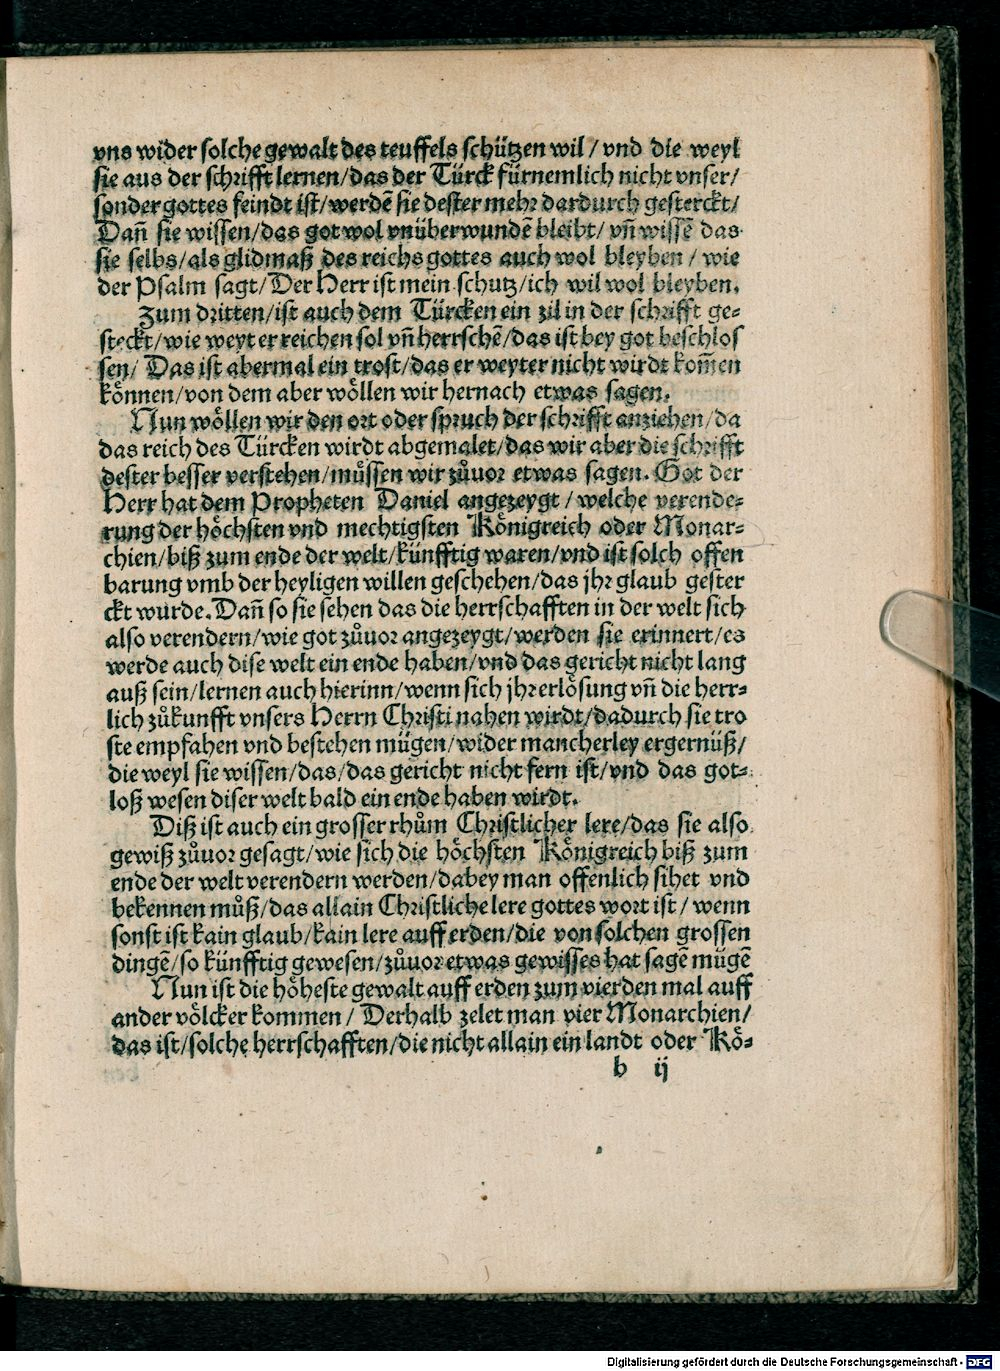 vns wider solche gewalt des teuffels schützen wil / vnd die weyl
sie aus der schrifft lernen/das der Türck fürnemlich nicht vnser/
sonder gottes feindt ist/werdē sie dester mehr dardurch gesterckt/
Dañ sie wissen/das got wol vnüberwundē bleibt/ vñ wissē das
sie selbs/als glidmaß des reichs gottes auch wol bleyben / wie
der Psalm sagt/Der Herr ist mein schutz/ich wil wol bleyben.
Zum dritten/ist auch dem Türcken ein zil in der schrifft ge-
steckt/wie weyt er reichen sol vñ herrschē/das ist bey got beschlos
sen/ Das ist abermal ein trost/das er weyter nicht wirdt kom̄en
können/von dem aber wöllen wir hernach etwas sagen.
Nun wöllen wir den ort oder spruch der schrifft anziehen/da
das reich des Türcken wirdt abgemalet/das wir aber die schrifft
dester besser verstehen/müssen wir zůuor etwas sagen. Got der
Herr hat dem Propheten Daniel angezeygt / welche verende-
rung der höchsten vnd mechtigsten Königreich oder Monar-
chien/biß zum ende der welt/künfftig waren/vnd ist solch offen
barung vmb der heyligen willen geschehen/das jhr glaub gester
ckt wurde. Dañ so sie sehen das die herrschafften in der welt sich
also verendern/wie got zůuor angezeygt/werden sie erinnert/es
werde auch dise welt ein ende haben/vnd das gericht nicht lang
auß sein/lernen auch hierinn/wenn sich jhr erlösung vñ die herr-
lich zůkunfft vnsers Herrn Christi nahen wirdt/dadurch sie tro
ste empfahen vnd bestehen mügen/wider mancherley ergernüß/
die weyl sie wissen/das/das gericht nicht fern ist/vnd das got-
loß wesen diser welt bald ein ende haben wirdt.
Diß ist auch ein grosser rhům Christlicher lere/das sie also
gewiß zůuor gesagt/wie sich die höchsten Königreich biß zum
ende der welt verendern werden/dabey man offenlich sihet vnd
bekennen můß/das allain Christliche lere gottes wort ist / wenn
sonst ist kain glaub/kain lere auff erden/die von solchen grossen
dingē/so künfftig gewesen/zůuor etwas gewisses hat sagē mügē
Nun ist die höheste gewalt auff erden zum vierden mal auff
ander völcker kommen / Derhalb zelet man vier Monarchien/
das ist/solche herrschafften/die nicht allain ein landt oder Kö-
b ij
Digitalisierung gefördert durch die Deutsche Forschungsgemeinschaft - DFG